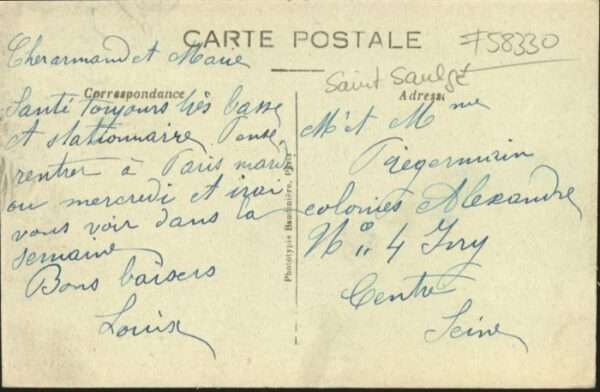 CARTE POSTALE
F58330
Saint Saulge
Correspondance
Adresse
Cher armand et Marie
Santé toujours très basse
et stationnaire. Pense
rentrer à Paris mardi
ou mercredi et irai
vous voir dans la
semaine
Bons baisers
Louise
Phototypie Baudinière, Paris
Mr et Mme
Trégermain
colonies Alexandre
No 4 Ivry
Centre
Seine